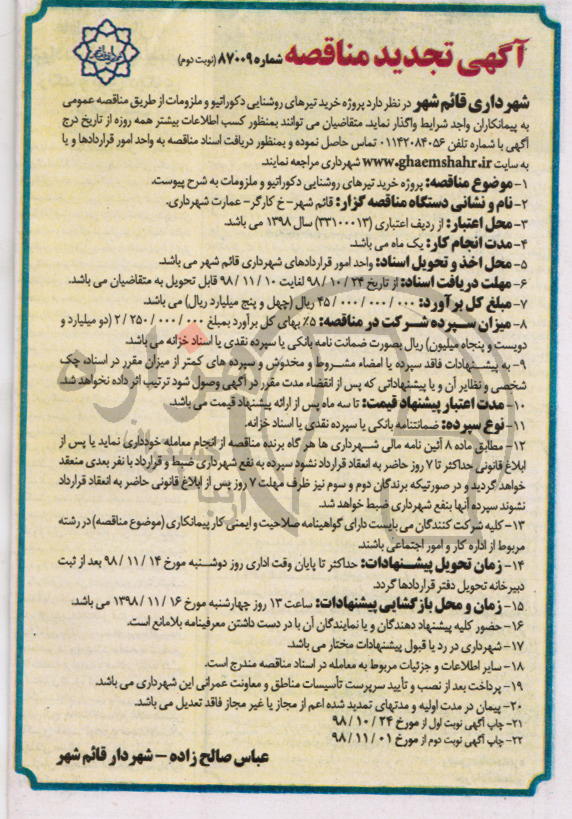 آگهی تجدید مناقصه شماره ۸۷۰۰۹ (نوبت دوم)
شهرداری قائم شهر در نظر دارد پروژه خرید تیرهای روشنایی دکوراتیو و ملزومات از طریق مناقصه عمومی
به پیمانکاران واجد شرایط واگذار نماید. متقاضیان می توانند بمنظور کسب اطلاعات بیشتر همه روزه از تاریخ درج
آگهی با شماره تلفن ۰۱۱۴۲۰۸۴۰۵۶ تماس حاصل نموده و بمنظور دریافت اسناد مناقصه به واحد امور قراردادها و یا
به سایت www.ghaemshahr.ir شهرداری مراجعه نمایند.
۱- موضوع مناقصه: پروژه خرید تیرهای روشنایی دکوراتیو و ملزومات به شرح پیوست.
۲- نام و نشانی دستگاه مناقصه گزار: قائم شهر- خ کارگر- عمارت شهرداری.
۳- محل اعتبار: از ردیف اعتباری (۳۳۱۰۰۰۱۳) سال ۱۳۹۸ می باشد.
۴- مدت انجام کار: یک ماه می باشد.
۵- محل اخذ و تحویل اسناد: واحد امور قراردادهای شهرداری قائم شهر می باشد.
۶- مهلت دریافت اسناد: از تاریخ ۲۴ / ۱۰ / ۹۸ لغایت ۱۰ / ۱۱ / ۹۸ قابل تحویل به متقاضیان می باشد.
۷- مبلغ کل برآورد: ۰۰۰ / ۰۰۰ / ۰۰۰ / ۴۵ ریال (چهل و پنج میلیارد ریال) می باشد.
۸- میزان سپرده شرکت در مناقصه: ۵٪ بهای کل برآورد بمبلغ ۰۰۰ / ۰۰۰ / ۲۵۰ / ۲ (دو میلیارد و
دویست و پنجاه میلیون) ریال بصورت ضمانت نامه بانکی یا سپرده نقدی یا اسناد خزانه می باشد.
۹- به پیشنهادات فاقد سپرده یا امضاء مشروط و مخدوش و سپرده های کمتر از میزان مقرر در اسناد، چک
شخصی و نظایر آن و یا پیشنهاداتی که پس از انقضاء مدت مقرر در آگهی وصول شود ترتیب اثر داده نخواهد شد.
۱۰- مدت اعتبار پیشنهاد قیمت: تا سه ماه پس از ارائه پیشنهاد قیمت می باشد.
۱۱- نوع سپرده: ضمانتنامه بانکی یا سپرده نقدی یا اسناد خزانه.
۱۲- مطابق ماده ۸ آئین نامه مالی شهرداری ها هر گاه برنده مناقصه از انجام معامله خودداری نماید یا پس از
ابلاغ قانونی حداکثر تا ۷ روز حاضر به انعقاد قرارداد نشود سپرده به نفع شهرداری ضبط و قرارداد با نفر بعدی منعقد
خواهد گردید و در صورتیکه برندگان دوم و سوم نیز ظرف مهلت ۷ روز پس از ابلاغ قانونی حاضر به انعقاد قرارداد
نشوند سپرده آنها بنفع شهرداری ضبط خواهد شد.
۱۳- کلیه شرکت کنندگان می بایست دارای گواهینامه صلاحیت و ایمنی کار پیمانکاری (موضوع مناقصه) در رشته
مربوط از اداره کار و امور اجتماعی باشند.
۱۴- زمان تحویل پیشنهادات: حداکثر تا پایان وقت اداری روز دوشنبه مورخ ۱۴ / ۱۱ / ۹۸ بعد از ثبت
دبیرخانه تحویل دفتر قراردادها گردد.
۱۵- زمان و محل بازگشایی پیشنهادات: ساعت ۱۳ روز چهارشنبه مورخ ۱۶ / ۱۱ / ۱۳۹۸ می باشد.
۱۶- حضور کلیه پیشنهاد دهندگان و یا نمایندگان آن با در دست داشتن معرفینامه بلامانع است.
۱۷- شهرداری در رد یا قبول پیشنهادات مختار می باشد.
۱۸- سایر اطلاعات و جزئیات مربوط به معامله در اسناد مناقصه مندرج است.
۱۹- پرداخت بعد از نصب و تأیید سرپرست تأسیسات مناطق و معاونت عمرانی این شهرداری می باشد.
۲۰- پیمان در مدت اولیه و مدتهای تمدید شده اعم از مجاز یا غیر مجاز فاقد تعدیل می باشد.
۲۱- چاپ آگهی نوبت اول از مورخ ۲۴ / ۱۰ / ۹۸
۲۲- چاپ آگهی نوبت دوم از مورخ ۰۱ / ۱۱ / ۹۸
عباس صالح زاده – شهردار قائم شهر